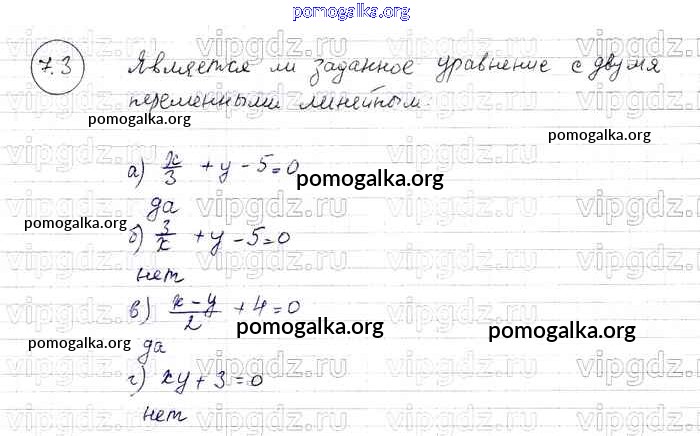 pomogalka.org
7.3 Является ли заданное уравнение с двумя
переменными линейным:
pomogalka.org
pomogalka.org
а) x/3 + y - 5 = 0
pomogalka.org
да
pomogalka.org
б) 3/x + y - 5 = 0
нет
в) x - y/2 + 4 = 0
pomogalka.org
pomogalka.org
pomogalka.org
да
г) xy + 3 = 0
нет
vipgdz.ru